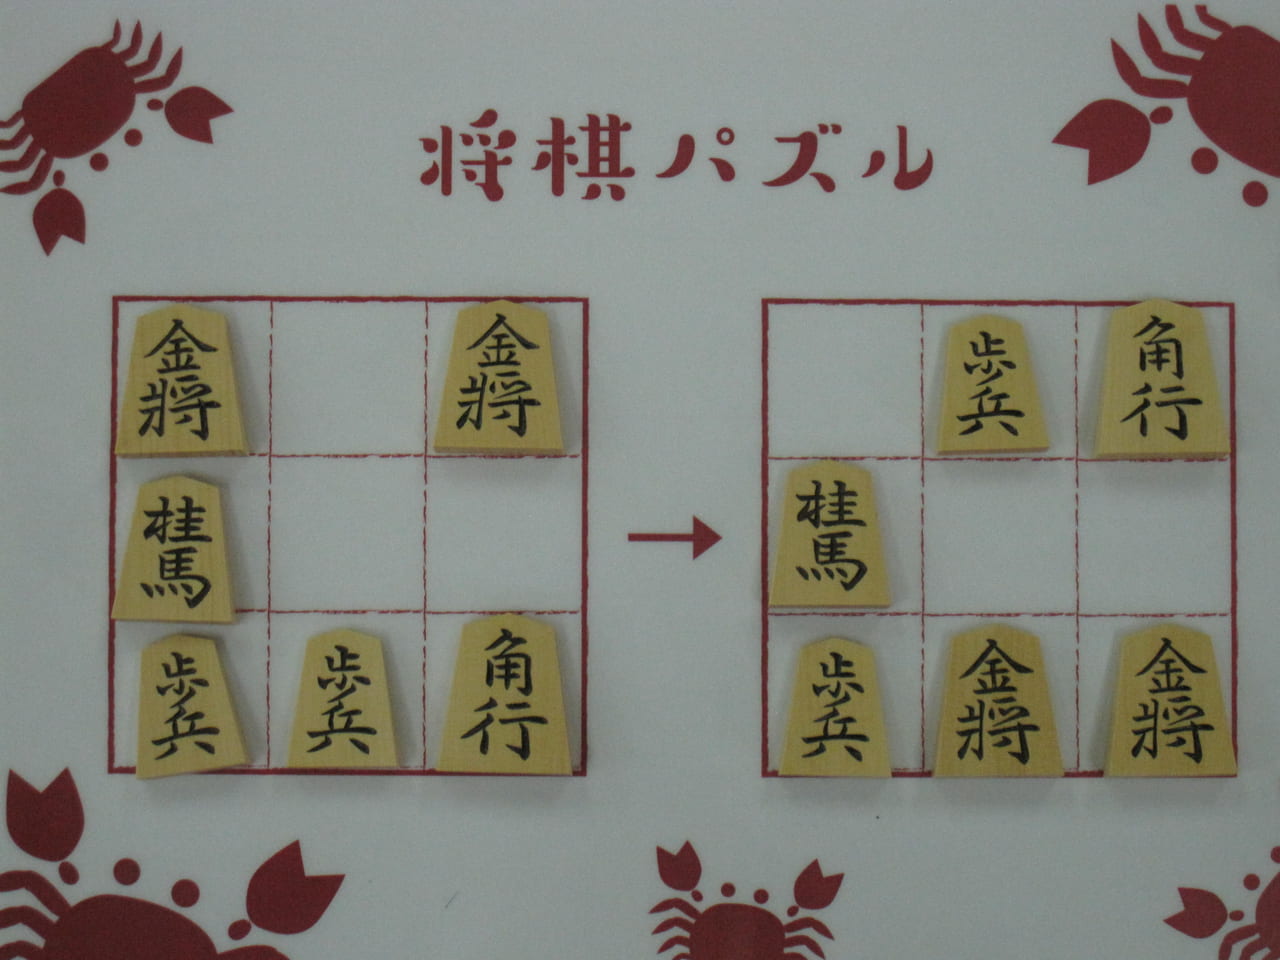 将棋パズル
金將 金將
桂馬
歩兵 歩兵 角行
歩兵 角行
桂馬
歩兵 金將 金將